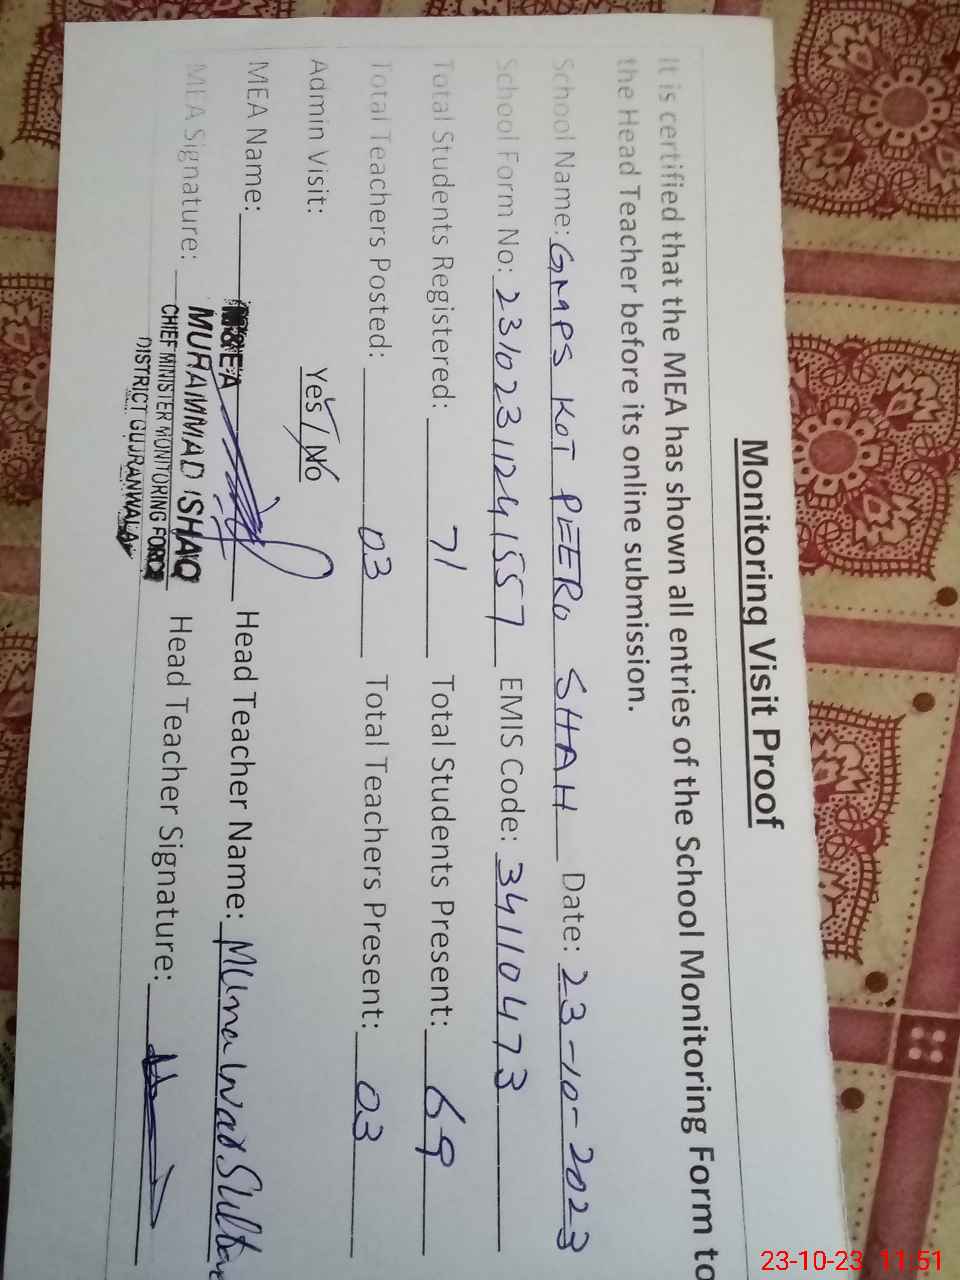 Monitoring Visit Proof
It is certified that the MEA has shown all entries of the School Monitoring Form to
the Head Teacher before its online submission.
School Name: GMPS KOT PEERO SHAH Date: 23-10-2023
School Form No: 23102311241557 EMIS Code: 34110473
Total Students Registered: 71 Total Students Present: 69
Total Teachers Posted: 03 Total Teachers Present: 03
Admin Visit: Yes / No
MEA Name: M&EA Head Teacher Name: Munawar Sultan
MEA Signature: MUHAMMAD ISHAQ Head Teacher Signature:
CHIEF MINISTER MONITORING FORCE
DISTRICT GUJRANWALA
23-10-23 11:51